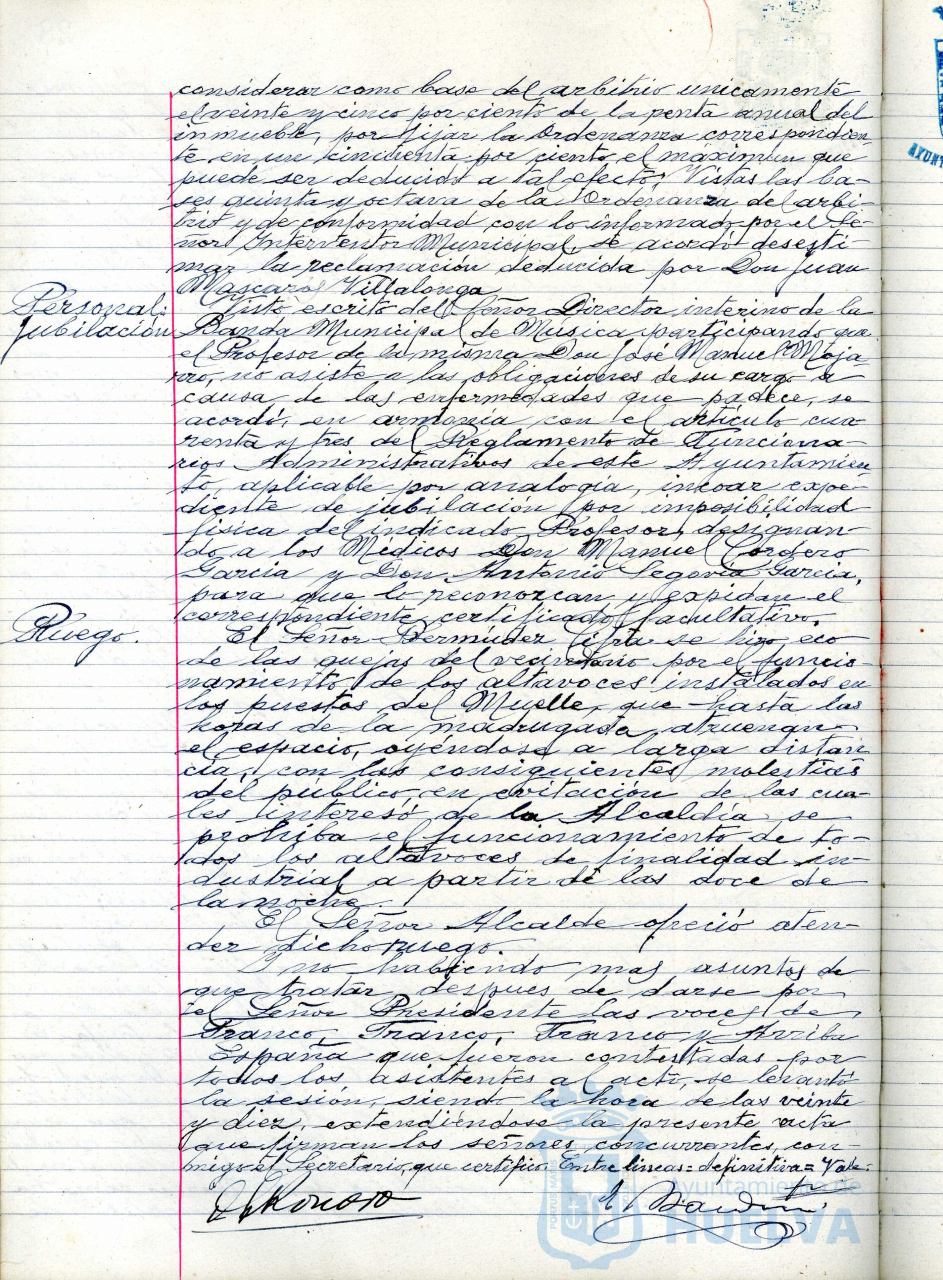 considerar como base del arbitrio unicamente
el veinte y cinco por ciento de la renta anual del
inmueble, por fijar la Ordenanza correspondien-
te en un cincuenta por ciento el máximun que
puede ser deducido a tal efecto; Vistas las ba-
ses quinta y octava de la Ordenanza del arbi-
trio y de conformidad con lo informado por el Se-
ñor Interventor Municipal, se acordó desesti-
mar la reclamación deducida por Don Juan
Mascaros Villalonga.
Personal:
Jubilación
Visto escrito del Señor Director interino de la
Banda Municipal de Música participando que
el Profesor de la misma Don José Manuel Moja-
rro, no asiste a las obligaciones de su cargo a
causa de las enfermedades que padece, se
acordó, en armonía con el artículo cua-
renta y tres del Reglamento de Funciona-
rios Administrativos de este Ayuntamien-
to, aplicable por analogía, incoar expe-
diente de jubilación por imposibilidad
física del indicado Profesor, designan-
do a los Médicos Don Manuel Cordero
García y Don Antonio Segovia García,
para que lo reconozcan y expidan el
correspondiente certificado facultativo.
Ruego.
El Señor Bermudez se hizo eco
de las quejas del vecindario por el funcio-
namiento de los altavoces instalados en
los puestos del Muelle, que hasta las
horas de la madrugada atruenan
el espacio, oyéndose a larga distan-
cia, con las consiguientes molestias
del público, en evitación de las cua-
les interesó de la Alcaldía se
prohiba el funcionamiento de to-
dos los altavoces de finalidad in-
dustrial a partir de las doce de
la noche.
El Señor Alcalde ofreció aten-
der dicho ruego.
Y no habiendo mas asuntos de
que tratar, despues de darse por
el Señor Presidente las voces de
Franco, Franco, Franco y Arriba
España que fueron contestadas por
todos los asistentes al acto, se levantó
la sesión, siendo la hora de las veinte
y diez, extendiéndose la presente acta
que firman los señores concurrentes, con-
migo el Secretario, que certifico. Entre lineas = definitiva = Vale.
Ayuntamiento de
HUELVA